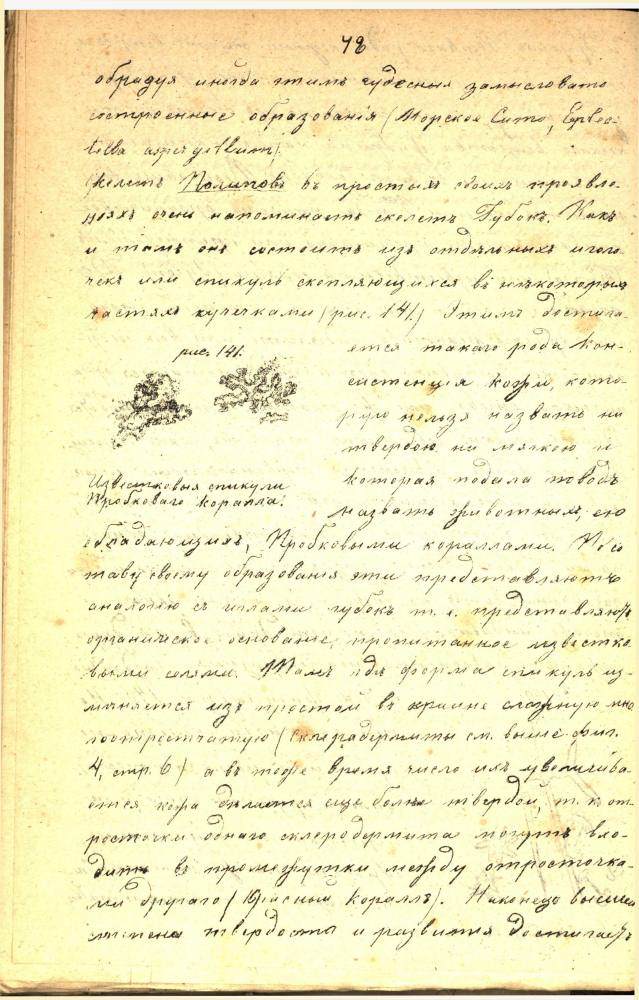 48
образуя иногда этимъ чудесныя замысловато
состроенные образованія (Морское Сито, Euplec-
tella aspergillum).
Скелетъ Полиповъ въ простыхъ своихъ проявле-
ніяхъ очень напоминаетъ скелетъ Губокъ. Какъ
и тамъ онъ состоитъ изъ отдѣльныхъ иголо-
чекъ или спикулъ скопляющихся въ нѣкоторыхъ
частяхъ кучечками (рис. 141) Этимъ достига-
рис. 141.
ется такаго рода кон-
систенція кожи, кото-
рую нельзя назвать ни
твердою ни мягкою и
Известковыя спикули
Пробковаго Коралла.
которая подала поводъ
назвать животныхъ, ею
обладающихъ, Пробковыми кораллами. По со
ставу своему образованія эти представляютъ
аналогію съ иглами губокъ т. е. представляютъ
органическое основаніе, пропитанное известко
выми солями. Тамъ гдѣ форма спикулъ из-
мѣняется изъ простой въ крайне сложную мно
гоотростчатую (Склеродермиты см. выше фиг.
4, стр. 6) а въ тоже время число ихъ увеличива-
ется кожа дѣлается еще болѣе твердой, т. к. от-
росточки одного склеродермита могутъ вхо-
дить въ промежутки между отросточка-
ми другаго (Красный Кораллъ). Наконецъ высшей
степени твердости и развитія достигаетъ